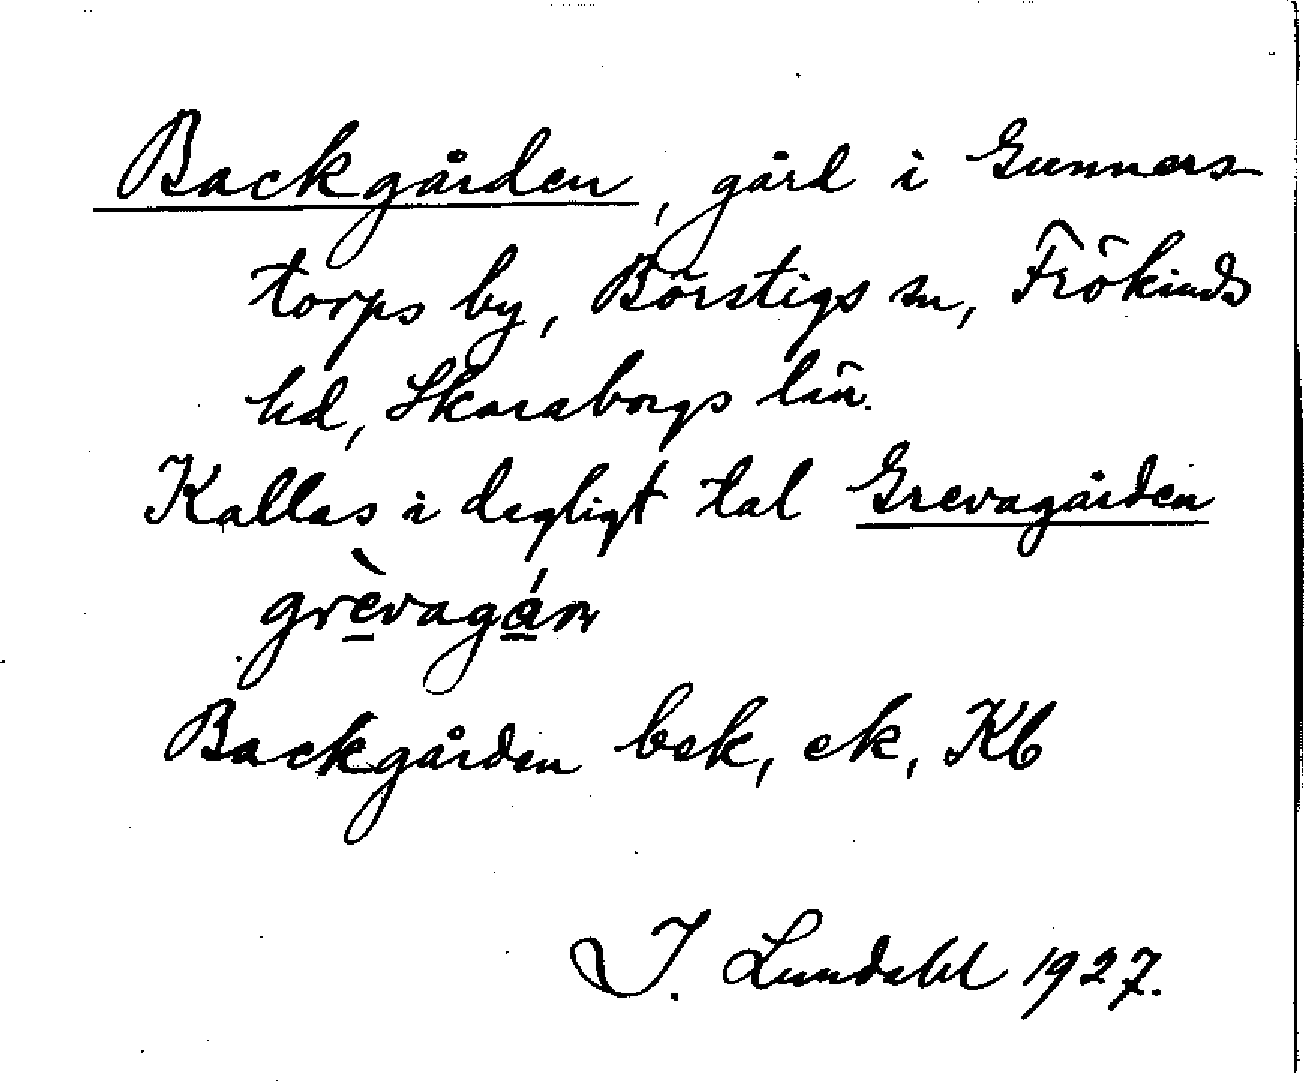 Backgården, gård i Gunnars-
torps by, Börstigs sn, Frökinds
hd, Skaraborgs län.
Kallas i dagligt tal Grevagården
grèvagán
Backgården bek, ek, Kb
I. Lundahl 1927.